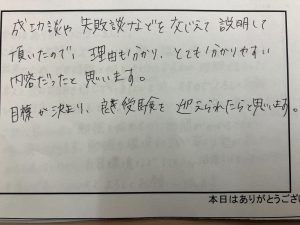 成功談や失敗談などを交じえて説明して
頂いたので、理由も分かり、とても分かりやすい
内容だったと思います。
目標が決まり、良い受験を迎えられたらと思います。
本日はありがとうござい